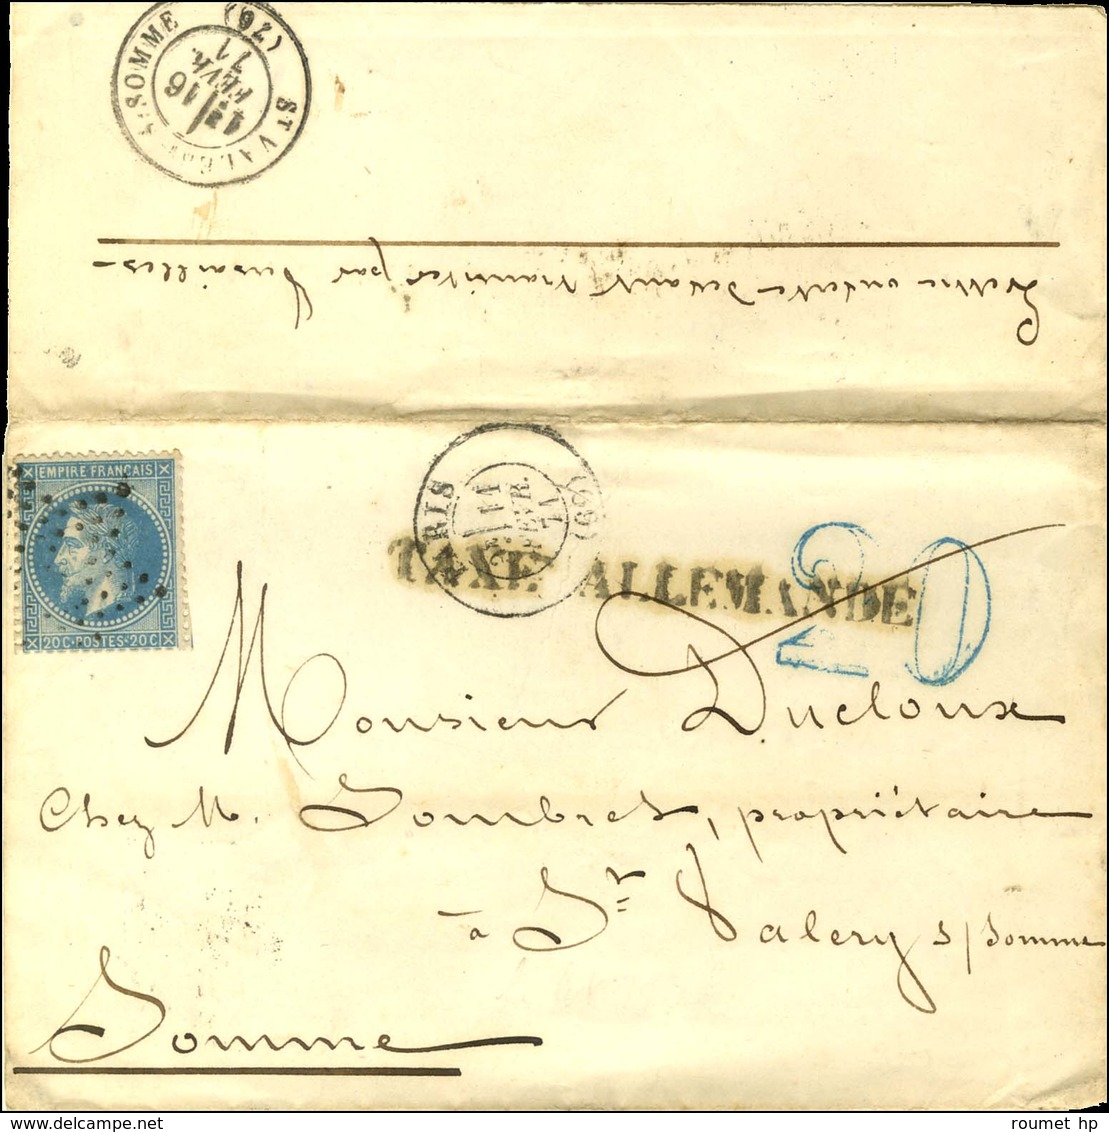 ST VALERY S/SOMME (76)
16
FEVR.
71
Lettre ouverte devant transiter par Versailles -
EMPIRE FRANÇAIS
20 C · POSTES · 20 C
PARIS (60)
11
FEVR.
71
TAXE ALLEMANDE
20
Monsieur Ducloux
Chez M. Sombret, propriétaire
à St Valery s/Somme
Somme
delcampe.net
roumet hp